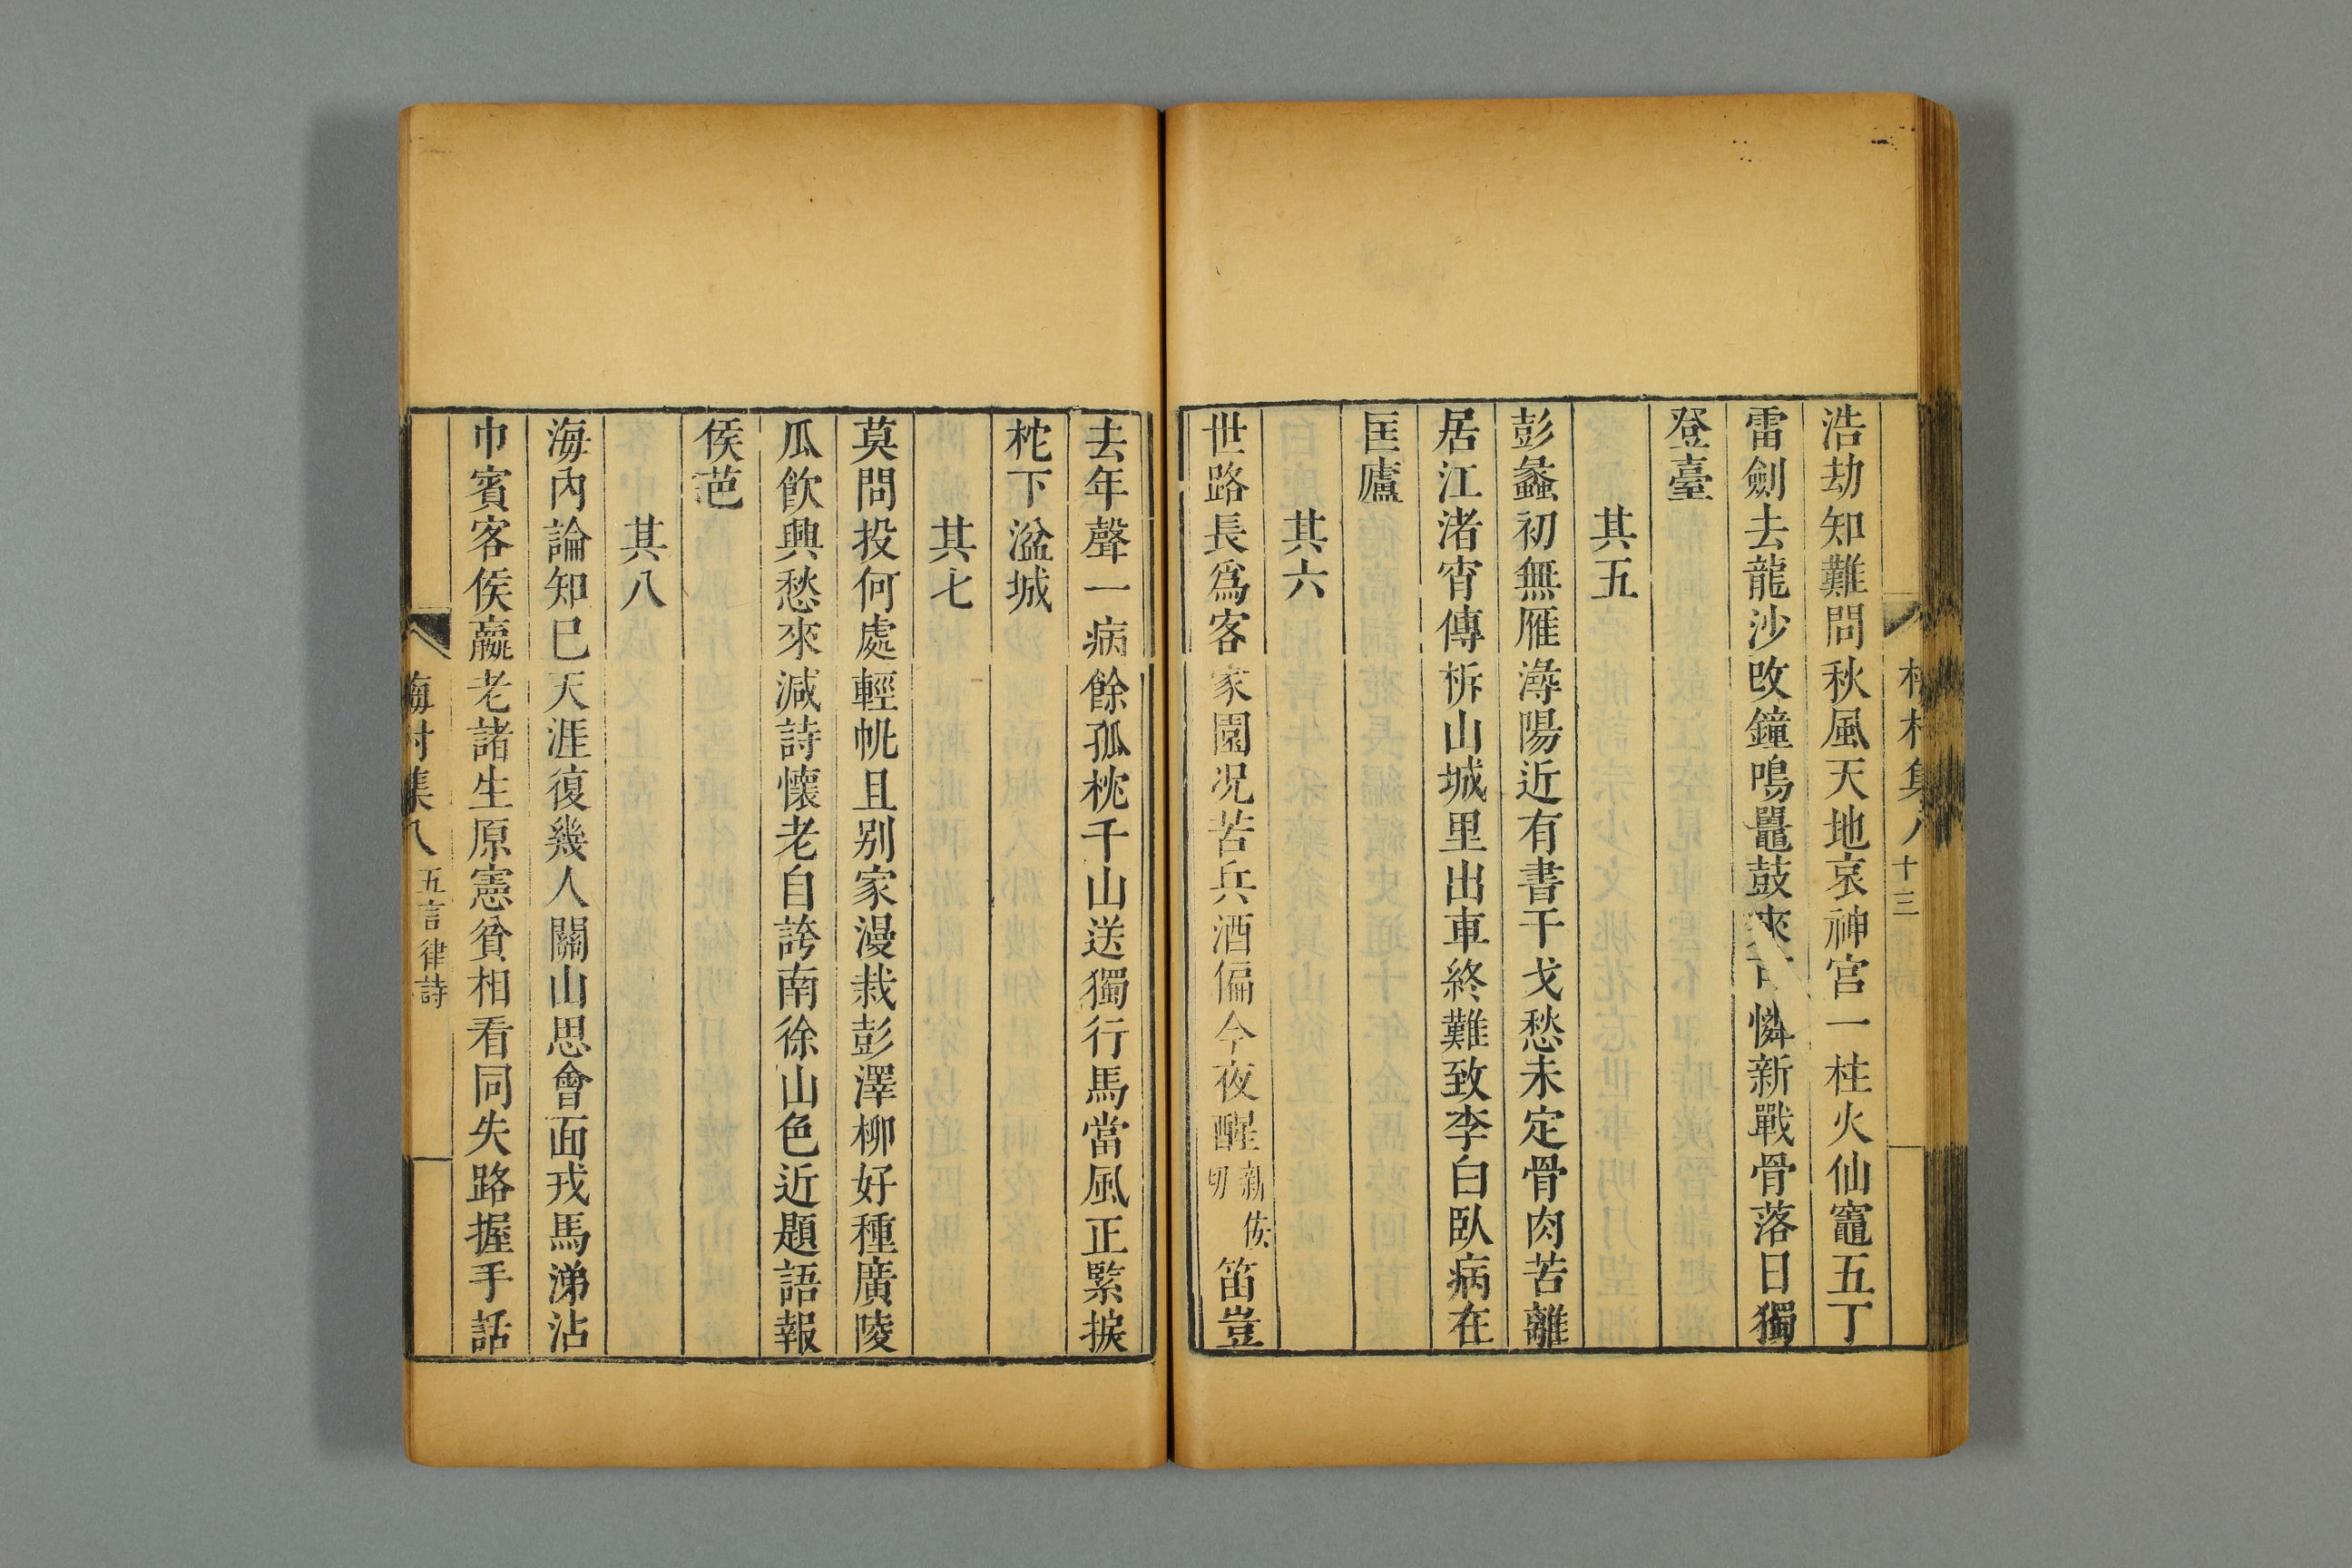 村集八 十三
浩劫知難問秋風天地哀神宮一柱火仙竈五丁
雷劍去龍沙改鐘鳴鼉鼓來憐新戰骨落日獨
登臺
其五
彭蠡初無雁潯陽近有書干戈愁未定骨肉苦離
居江渚宵傳柝山城里出車終難致李白臥病在
匡廬
其六
世路長為客家園况苦兵酒偏今夜醒新佞切笛豈
去年聲一病餘孤枕千山送獨行馬當風正緊捩
柁下湓城
其七
莫問投何處輕帆且别家漫栽彭澤柳好種廣陵
瓜飲興愁來減詩懷老自誇南徐山色近題語報
侯芭
其八
海內論知己天涯復幾人關山思會面戎馬涕沾
巾賓客侯嬴老諸生原憲貧相看同失路握手話
梅村集八 五言律詩